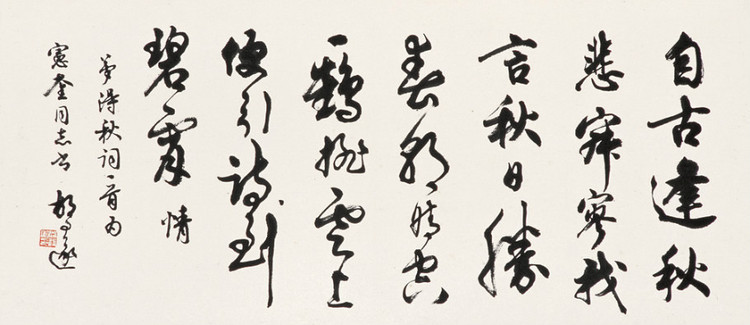 自古逢秋
悲寂寥我
言秋日勝
春朝晴空
一鶴排雲上
便引詩到
碧霄 情
夢得秋詞一首為
憲奎同志書 胡問遂